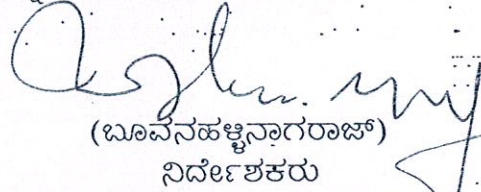 (ಬೂವನಹಳ್ಳಿನಾಗರಾಜ್)
ನಿರ್ದೇಶಕರು